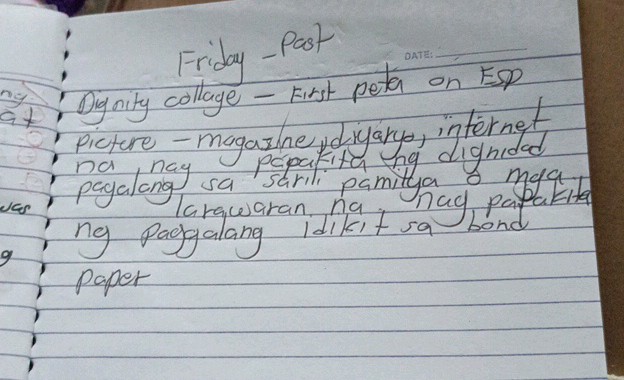 Friday - Past
DATE:
Dignity collage - First peta on ESP
picture - magazine, diyaryo, internet
na nag papakita ng dignidad
pagalang sa sarili pamilya o mga
larawaran na nag papakita
ng paggalang idikit sa bond
paper
ng
at
was
g